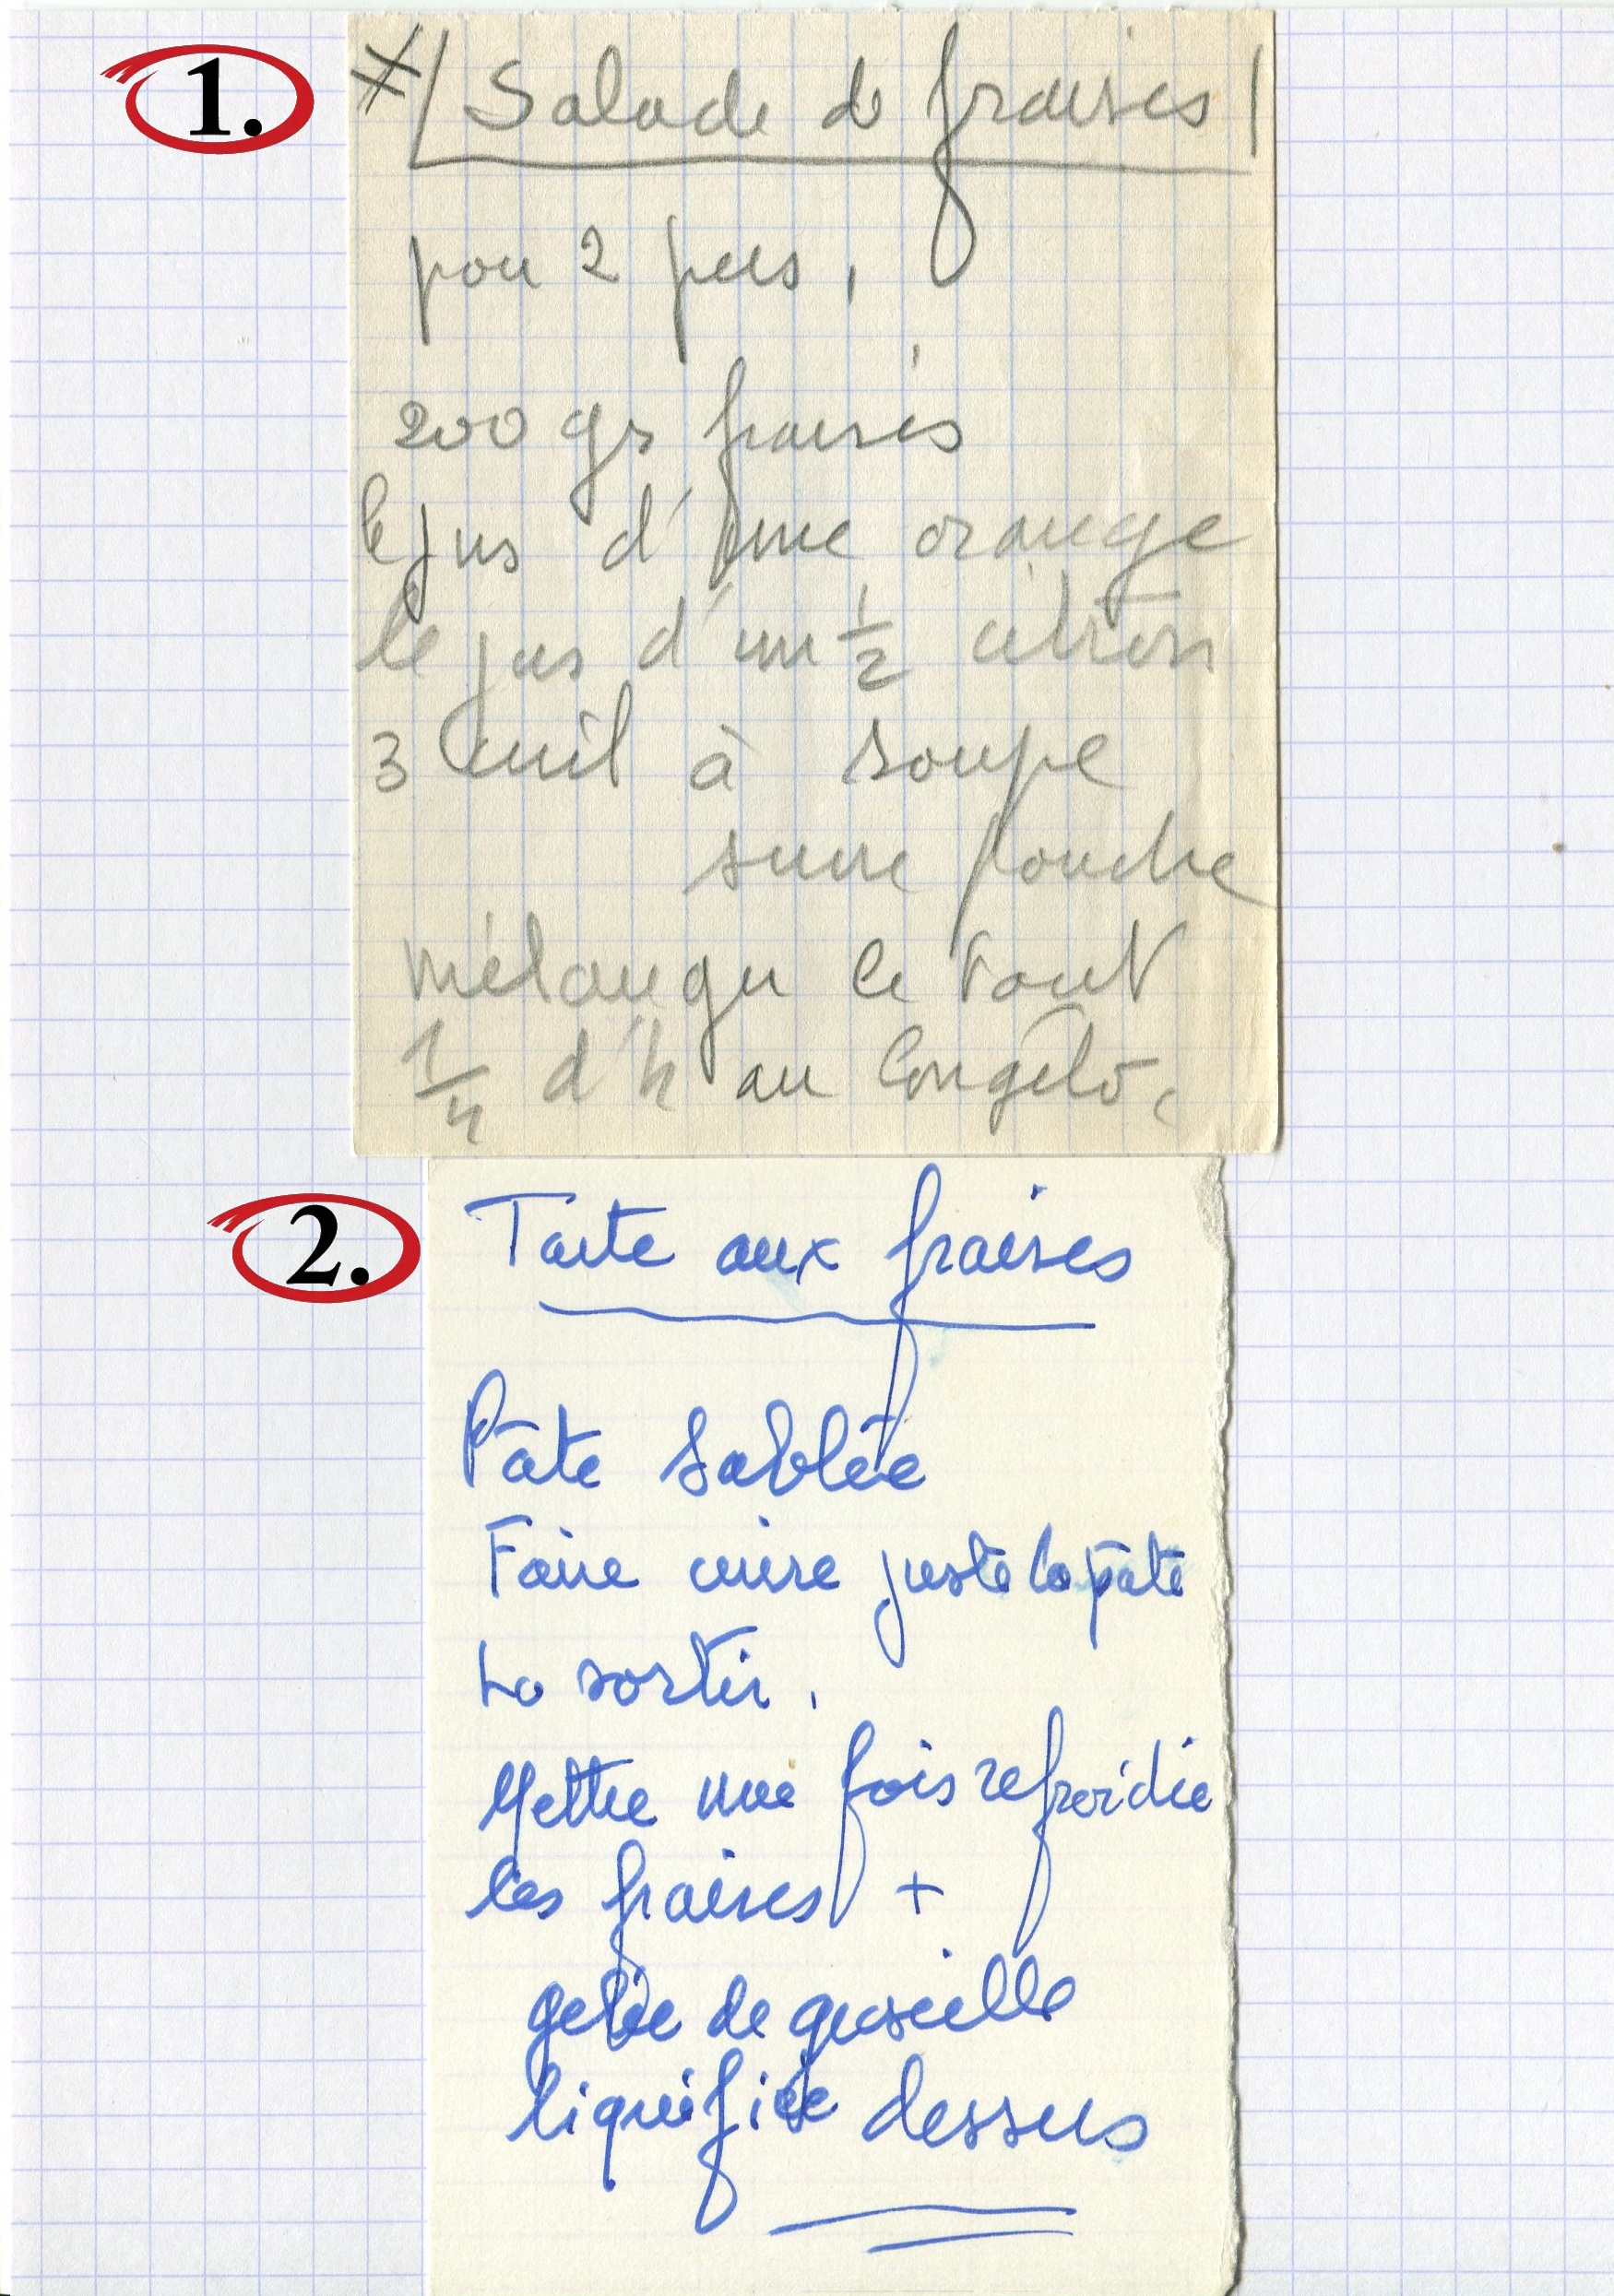 1.
Salade de fraises
pour 2 pers.
200 grs fraises
le jus d'une orange
le jus d'un 1/2 citron
3 cuil à soupe
sucre poudre
mélanger le tout
1/4 d'h au congélo.
2.
Tarte aux fraises
Pâte sablée
Faire cuire juste la pâte
La sortir.
Mettre une fois refroidie
les fraises +
gelée de groseille
liquéfiée dessus